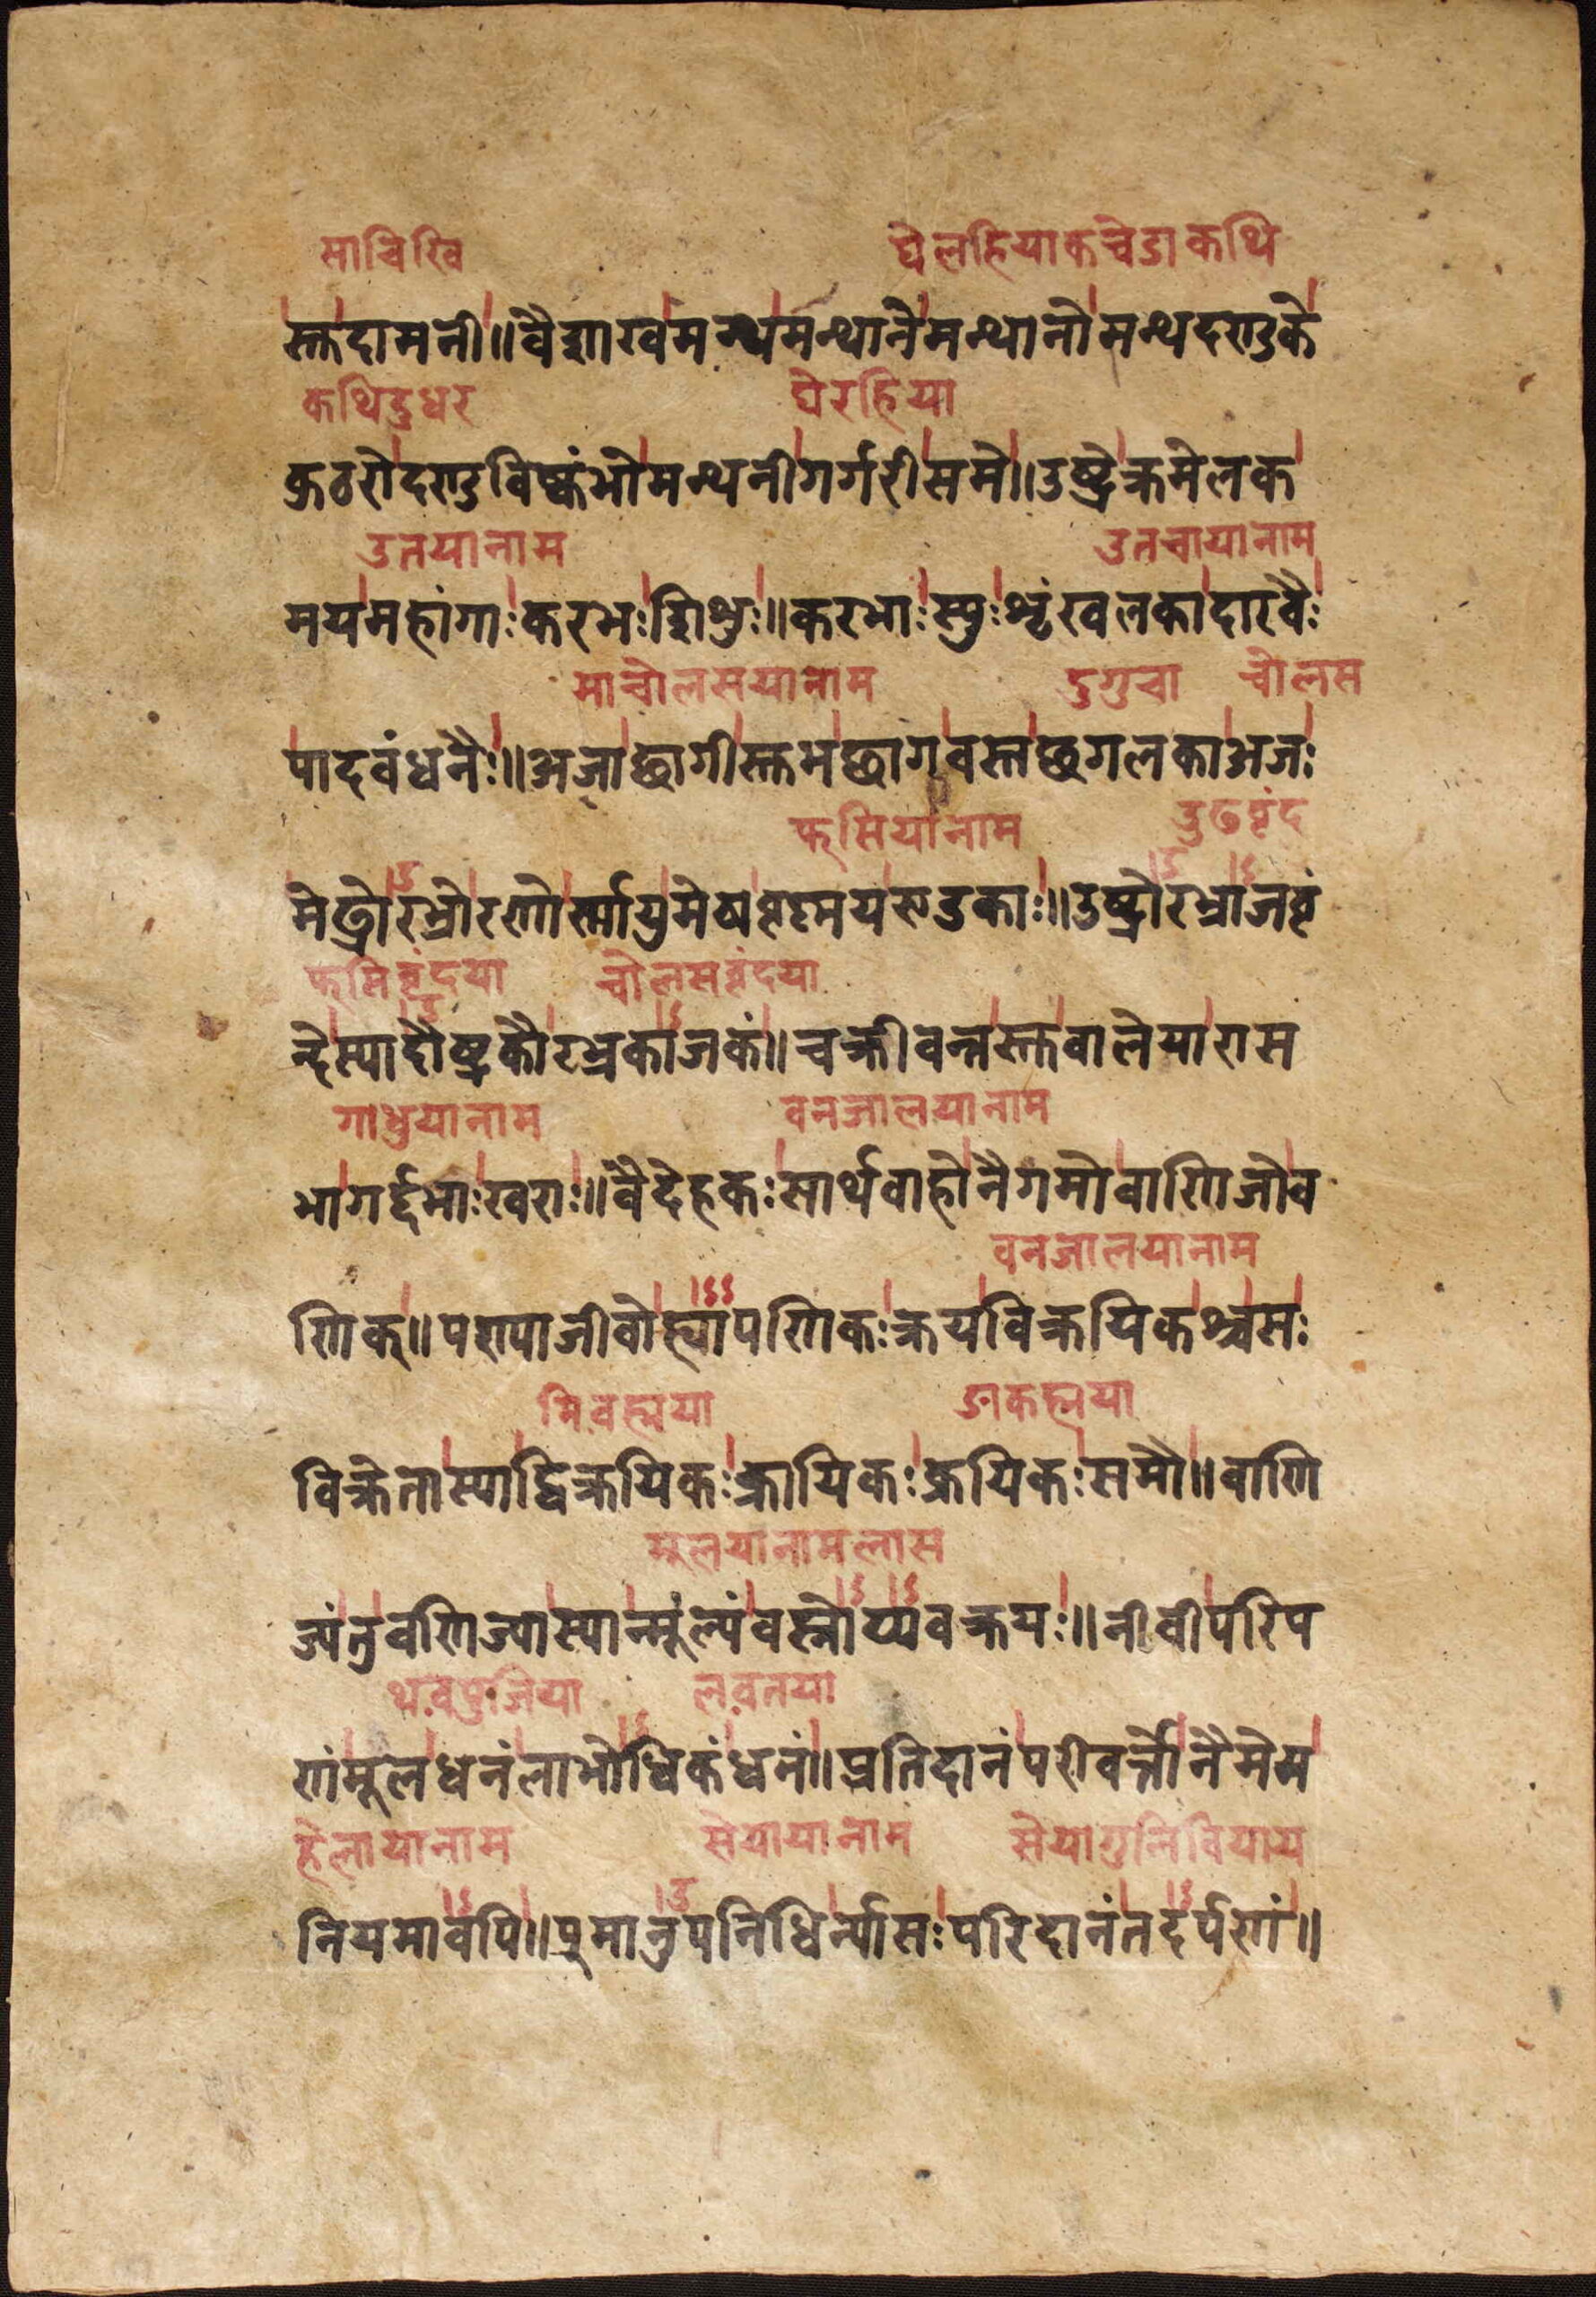 साचिखि घेलहियाकचेडाकथि
स्तदामनी॥वैशाखमन्थमन्थानमन्थानोमन्थदण्डके
कथिडुधर घेरहिया
कुठरोदण्डविष्कंभोमन्थनीगर्गरीसमे॥उष्ट्रेक्रमेलक
उतयानाम उतचायानाम
मयमहांगाःकरभःशिशुः॥करभाःस्युःशृंखलकादारवैः
माचोलसयानाम दुगुचा चोलस
पादवंधनैः॥अजाछागीस्तभछागवस्तछगलकाअजः
फसियानाम वृंद
मेढ्रोरभ्रोरणोर्स्मायुमेषवृष्मयएडकाः॥उष्ट्रोरभ्राजवृं
फसिवृंदया चोलसवृंदया
न्देस्यादौष्ट्रकौरभ्रकाजकं॥चक्रीवन्नस्तवालेयारास
गाधुयानाम वनजालयानाम
भागर्द्दभाःखराः॥वैदेहकःसार्थवाहोनैगमोवाणिजोव
वनजालयानाम
णिक्॥पण्याजीवोह्यापणिकःक्रयविक्रयिकश्चसः
मिवह्मया ङाकह्मया
विक्रेतास्याद्विक्रयिकःक्रायिकःक्रयिकःसमौ॥वाणि
मूलयानामलास
ज्यंतुवणिज्यास्यान्मूल्यंवस्नोप्यवक्रयः॥नीवीपरिप
थवपुजिया लवतया
णंमूलधनंलाभोधिकंधनं॥प्रतिदानंपरीवर्त्तोनैमेय
हेलायानाम सेयायानाम सेयागुलिवियाय
नियमावपि॥पुमानुपनिधिर्न्यासःपरिदानंतदर्पणं॥